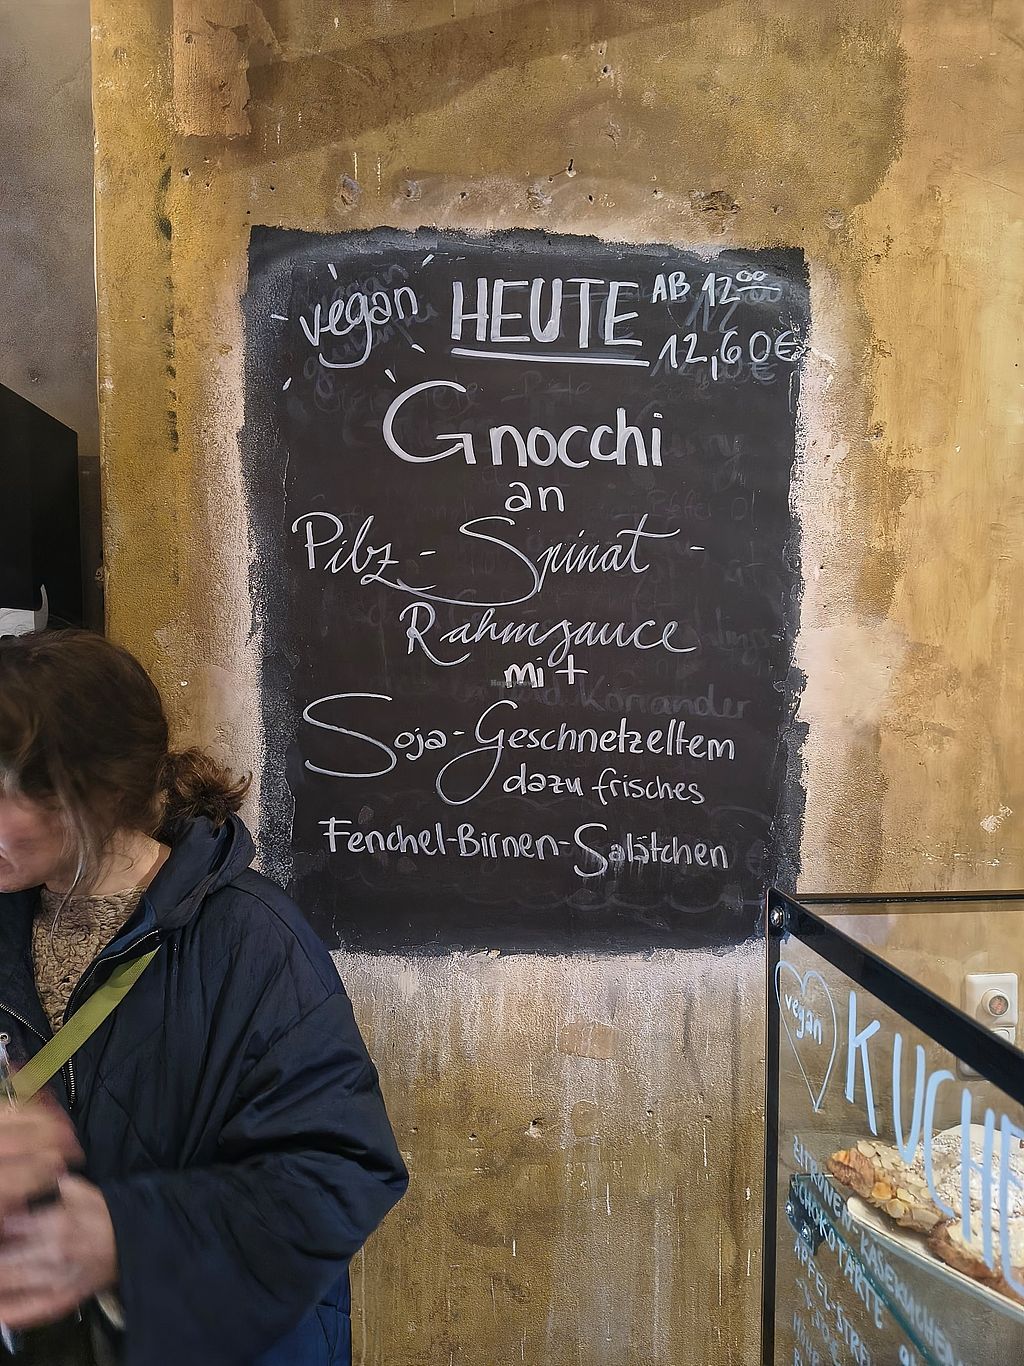 vegan HEUTE AB 12⁰⁰
12,60€
Gnocchi
an
Pilz-Spinat-
Rahmsauce
mit
Soja-Geschnetzeltem
dazu frisches
Fenchel-Birnen-Salätchen
vegan
KUCHE
ZITRONEN-KÄSEKUCHEN
SCHOKOTARTE
APFEL-STRE